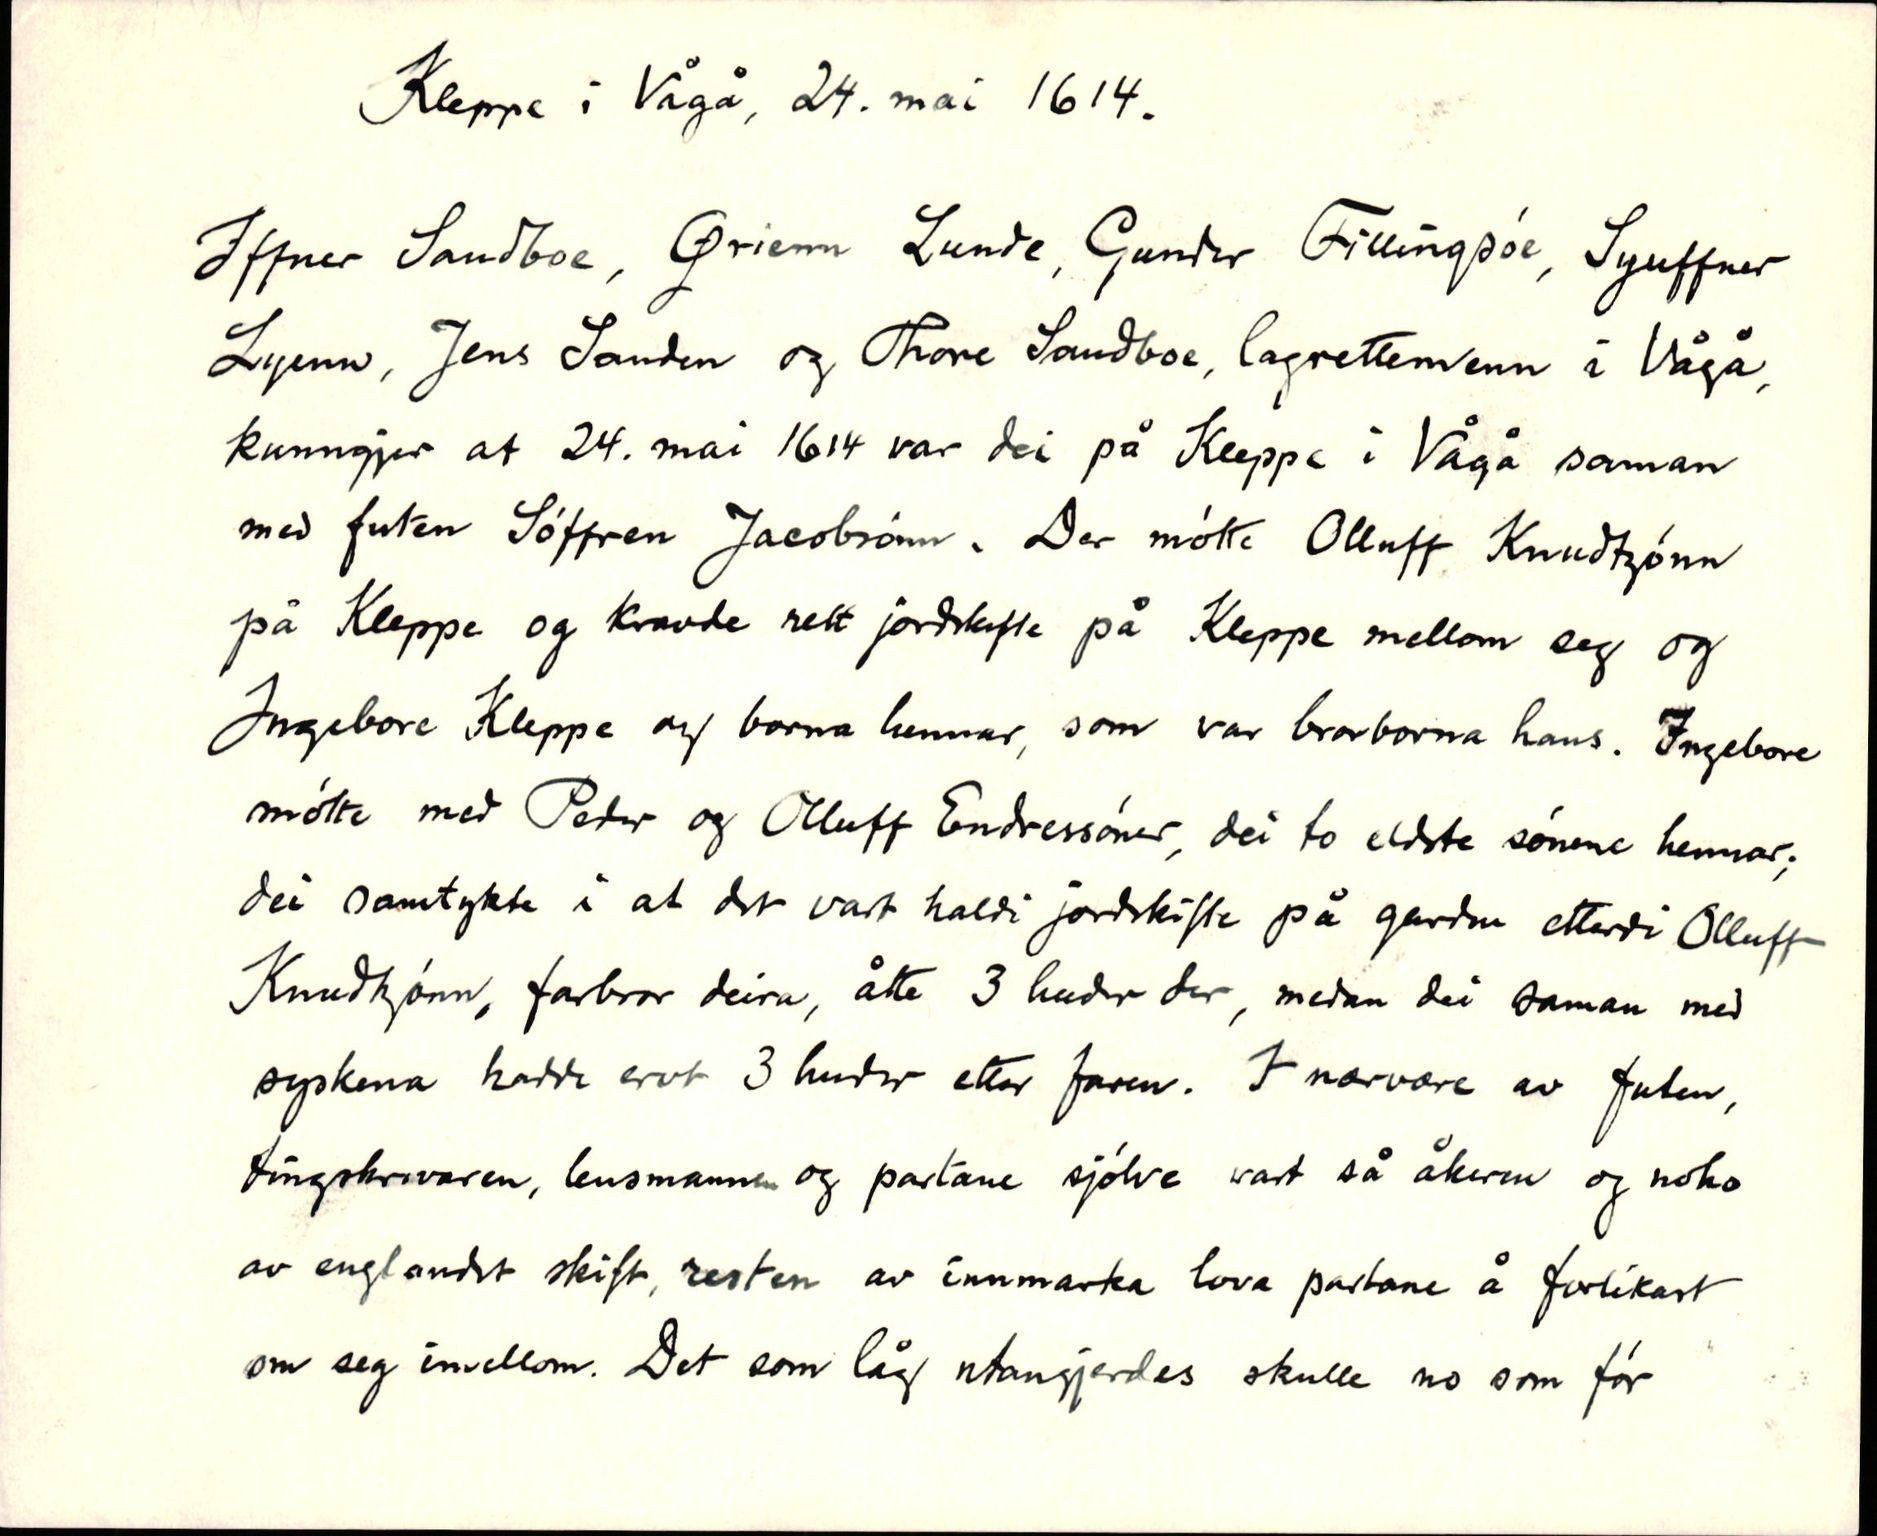 Kleppe i Vågå, 24. mai 1614.
Iffner Sandboe, Ørienn Lunde, Gunder Fillingsóe, Syuffner
Lyenn, Jens Sanden og Thore Sandboe, lagrettemenn i Vågå,
kunngjer at 24. mai 1614 var dei på Kleppe i Vågå saman
med futen Sóffren Jacobsónn. Der mótte Olluff Knudtzónn
på Kleppe og kravde rett jordskifte på Kleppe mellom seg og
Ingebore Kleppe og borna hennar, som var brorborna hans. Ingebore
mótte med Peder og Olluff Endressóner, dei to eldste sónene hennar;
dei samtykte i at det vart haldi jordskifte på garden etterdi Olluff
Knudtzónn, farbror deira, åtte 3 huder der, medan dei saman med
syskena hadde ervt 3 huder etter faren. I nærvære av futen,
tingskrivaren, lensmannen og partane sjólve vart så åkeren og noko
av englandet skift, resten av innmarka lova partane å forlikast
om seg imellom. Det som låg utangjerdes skulle no som fór